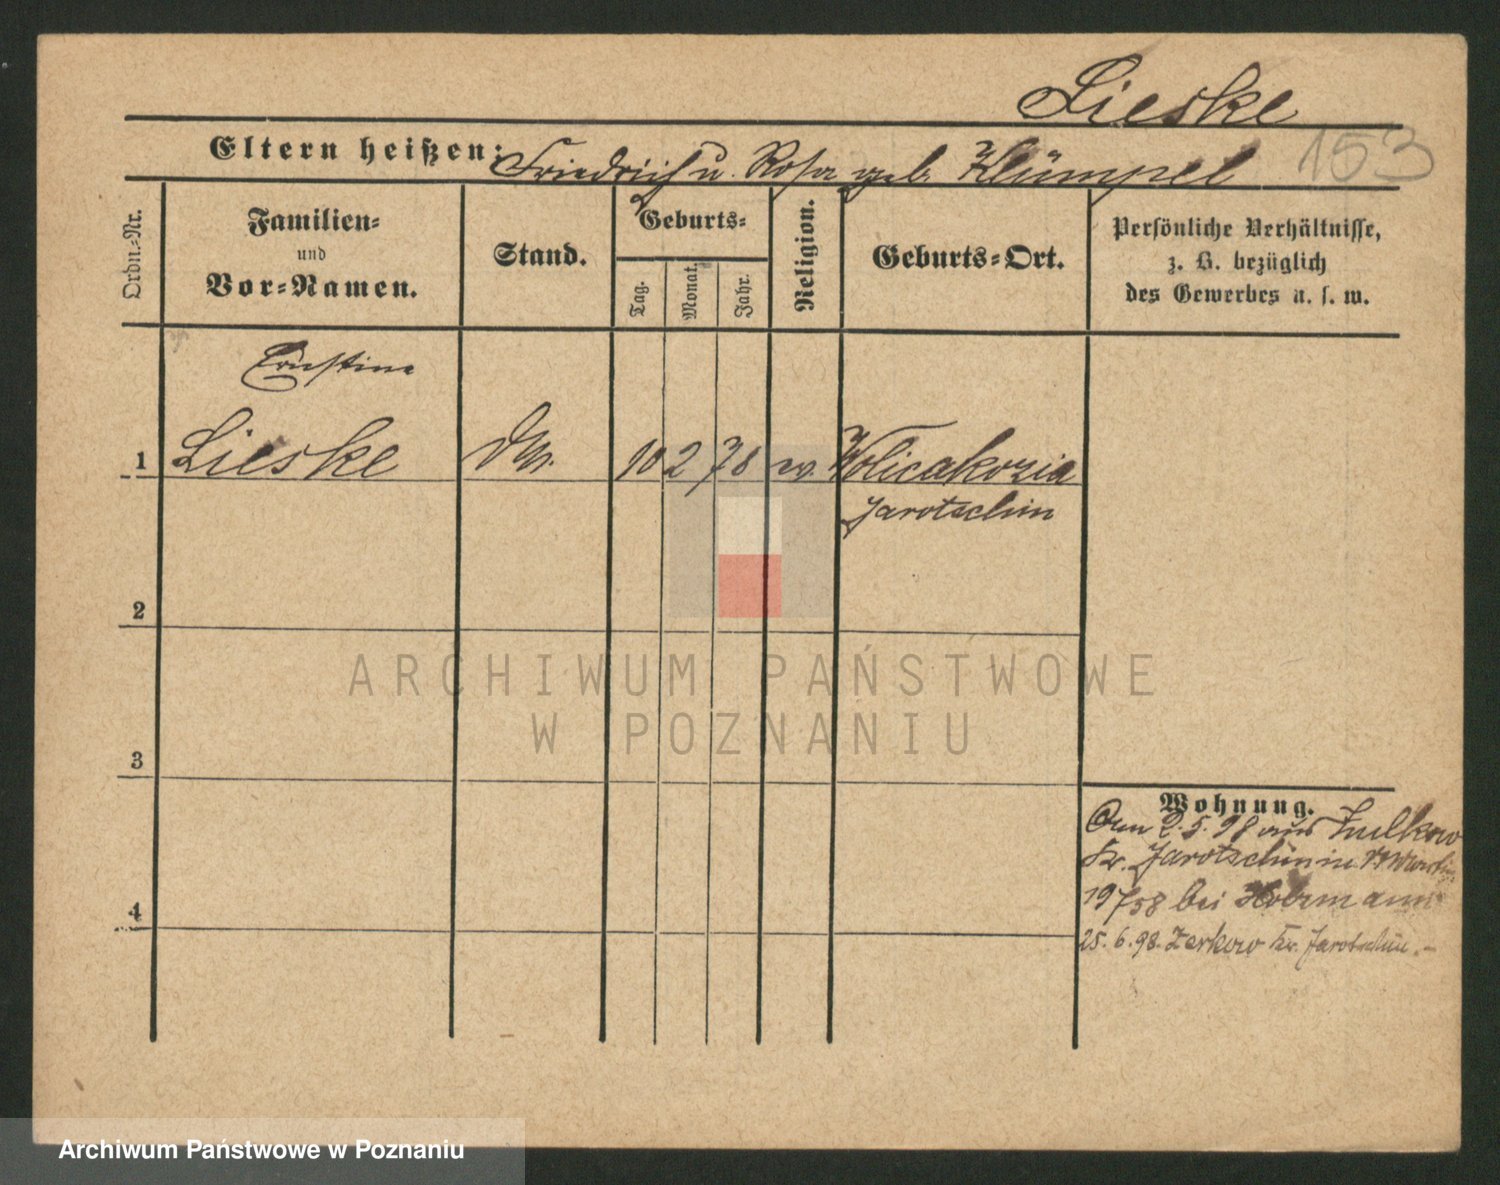 Lieske
153
Eltern heißen: Friedrich u. Rosa geb. Klümpel
Ordn.-Nr.
Familien-
und
Vor-Namen.
Stand.
Geburts-
Tag.
Monat.
Jahr.
Religion.
Geburts-Ort.
Persönliche Verhältnisse,
z. B. bezüglich
des Gewerbes u. s. w.
Ernestine
1 Lieske 10 2 78 Wolicakozia
Jarotschin
2
3
4
Wohnung.
2. 5. 98 aus
Kr. Jarotschin in
bei
25. 6. 98. Zerkow Kr. Jarotschin. -
ARCHIWUM PAŃSTWOWE
W POZNANIU
Archiwum Państwowe w Poznaniu